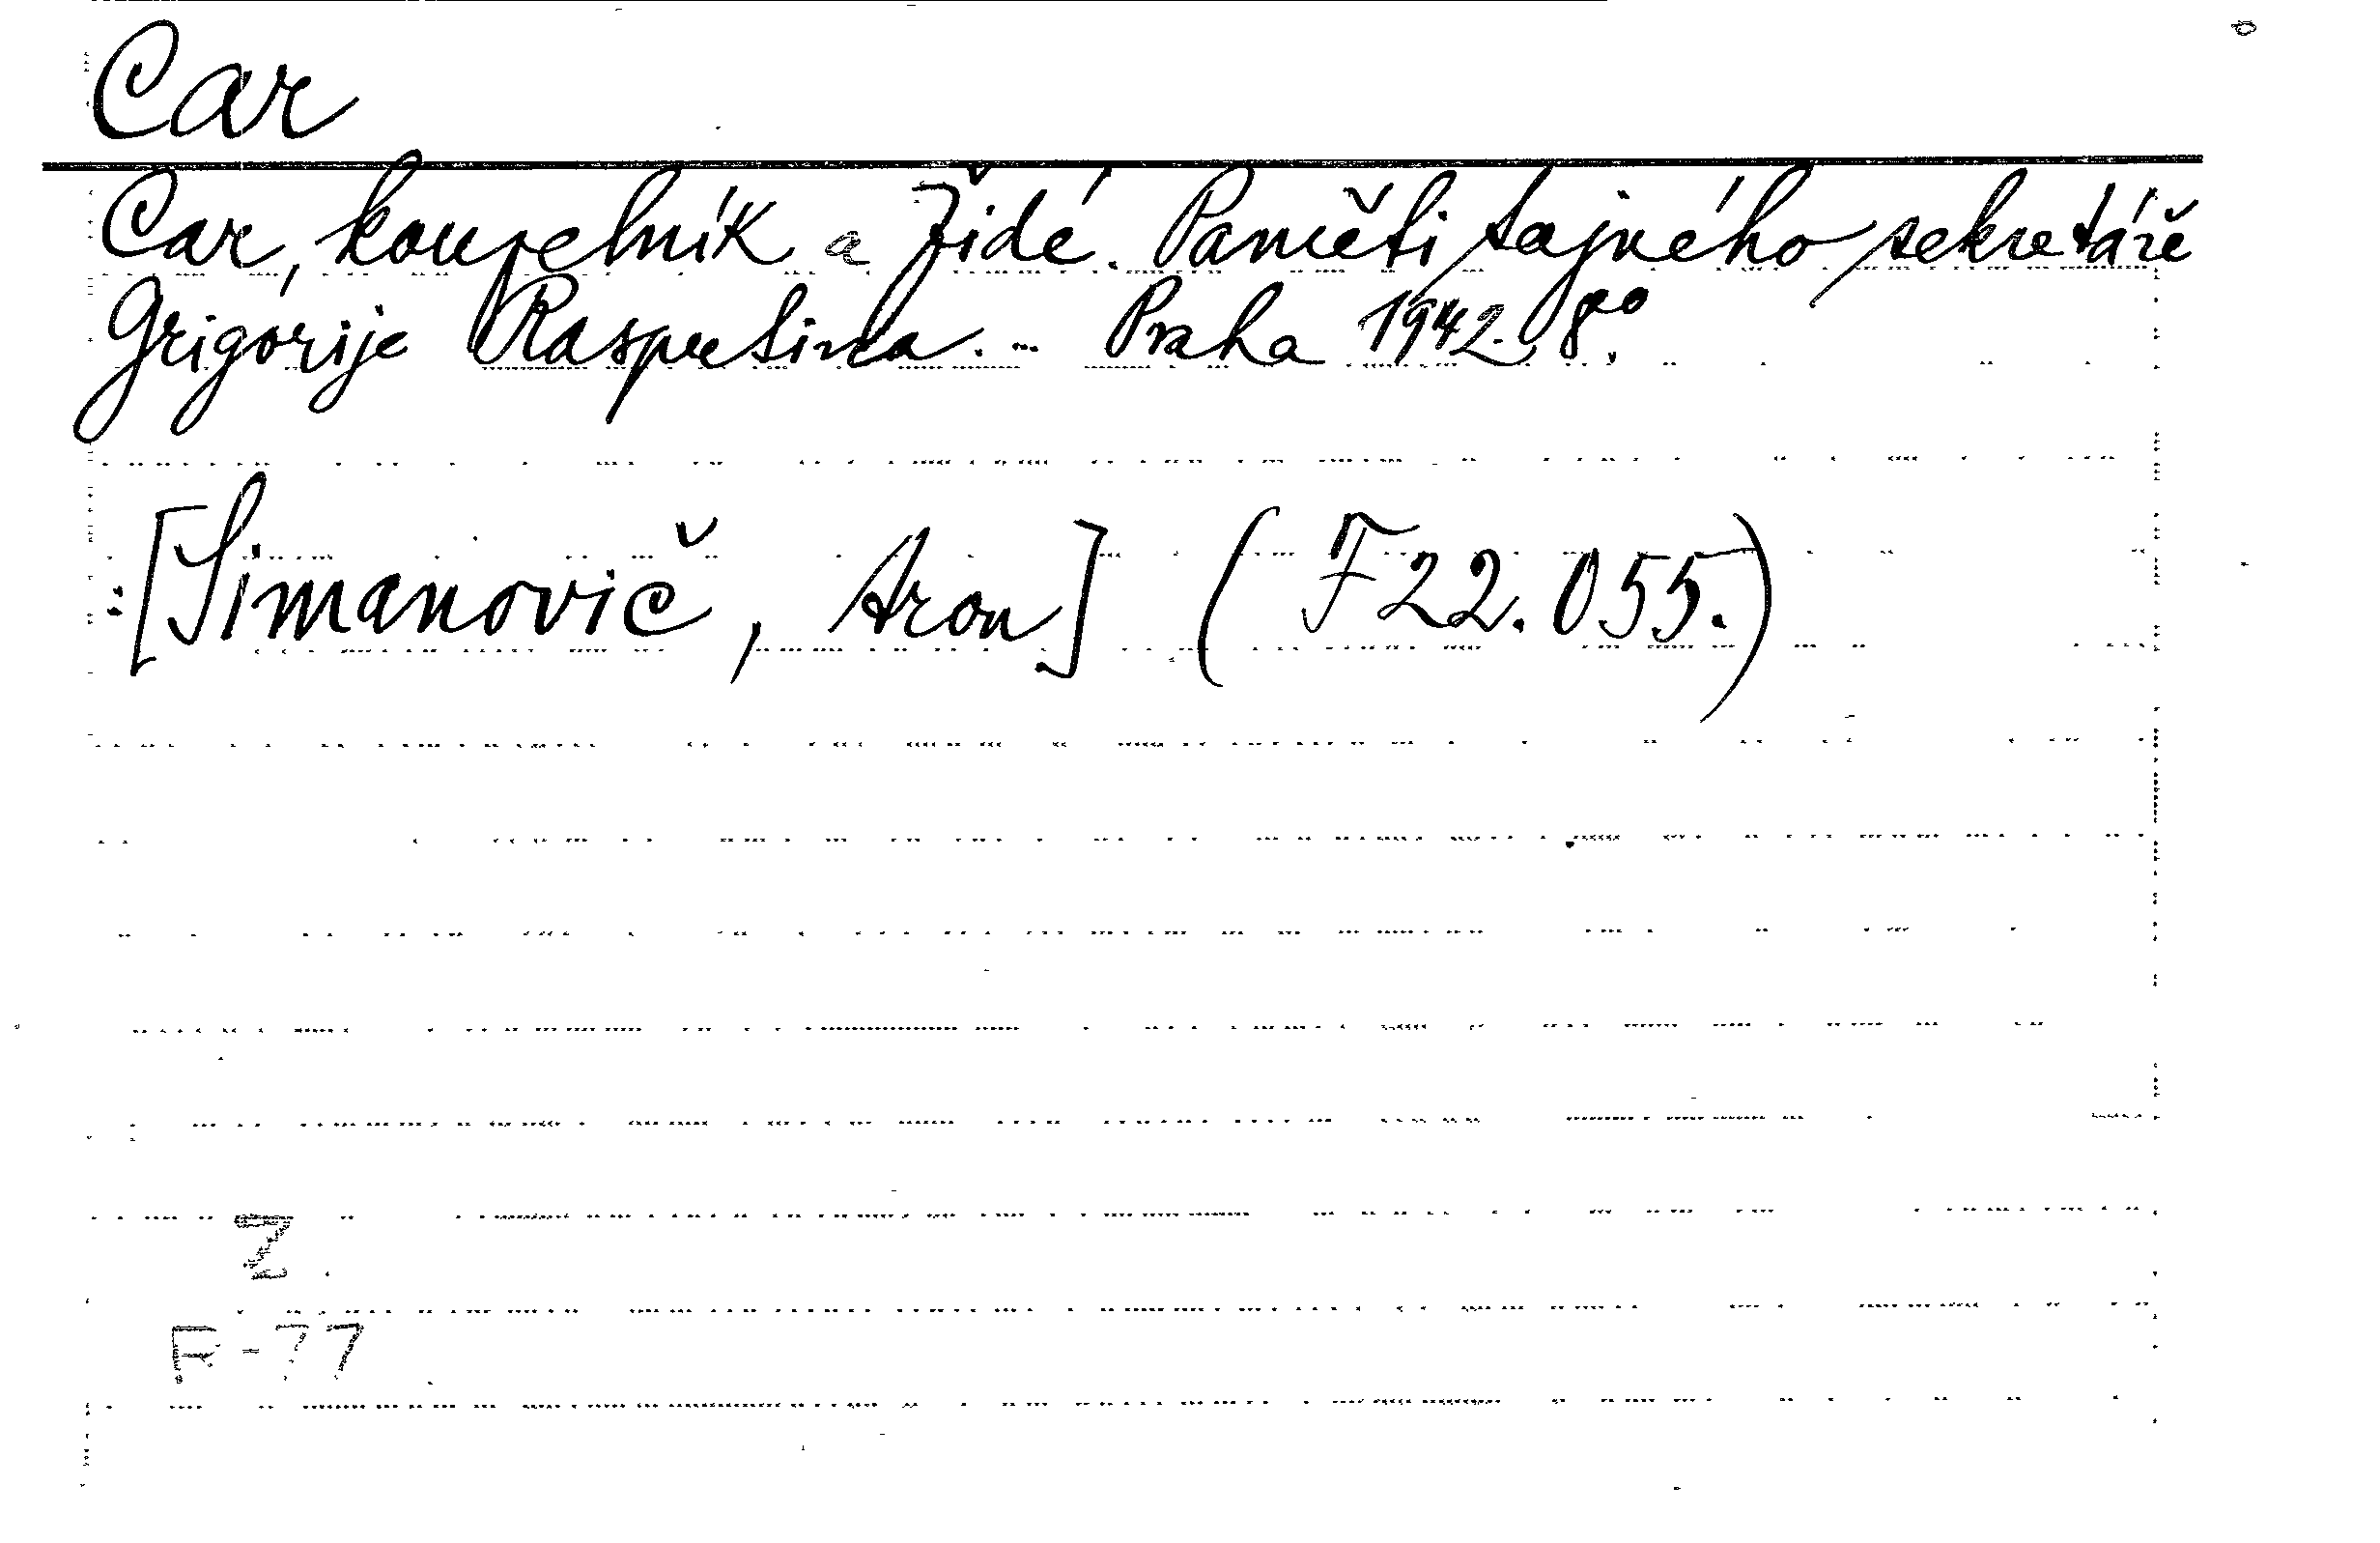 Car
Car, kouzelník a Židé. Paměti tajného sekretáře
Grigorije Rasputina. - Praha 1942. 8°.
:[Simanovič, Aron] (F 22.055.)
Z
F-77